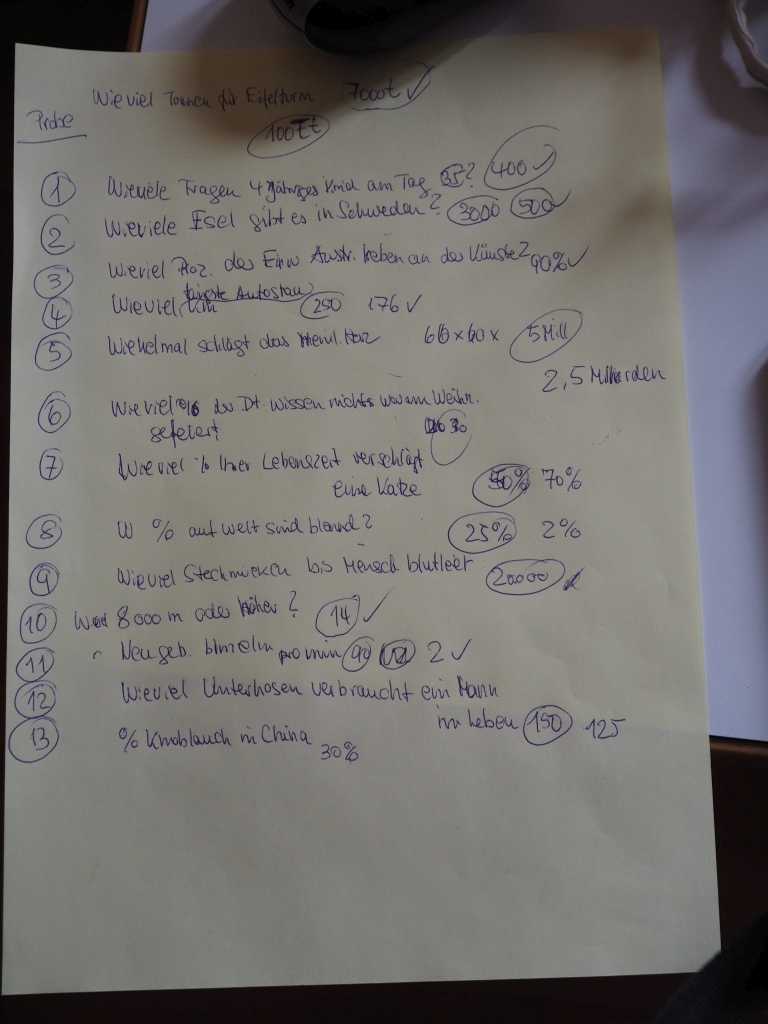 Wieviel Tonnen für Eifelturm 7000t ✓
Probe
100Tt
1 Wieviele Fragen 4 jähriges Kind am Tag 35? 400 ✓
2 Wieviele Esel gibt es in Schweden? 3000 500 ✓
3 Wieviel Proz. des Einw Austr. leben an der Künste? 90% ✓
längste Autostau
4 Wieviel km 250 176 ✓
5 Wievielmal schlägt das Herz 60 x 60 x 5 Mill
2,5 Milliarden
6 Wieviel % der Dt. wissen nicht was am Weihn.
gefeiert 30
7 Wie viel % Ihrer Lebenszeit verschläft
eine Katze 50% 70%
8 W % auf Welt sind blond? 25% 2%
9 Wieviel Stechmücken bis Mensch blutleer 20000
10 8000 m oder höher? 14 ✓
11 " Neugeb. pro min 90 2 ✓
12 Wieviel Unterhosen verbraucht ein Mann
im Leben 150 125
13 % Knoblauch in China 30%